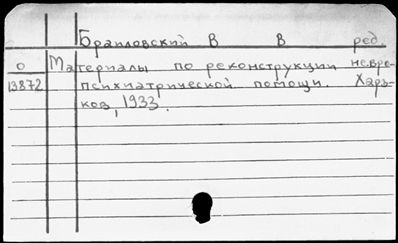 Браиловский В В ред.
о Материалы по реконструкции невро-
13872 психиатрической помощи. Харь-
ков, 1933.